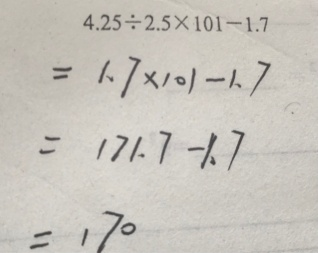 4.25÷2.5×101−1.7
= 1.7×101−1.7
= 171.7−1.7
= 170